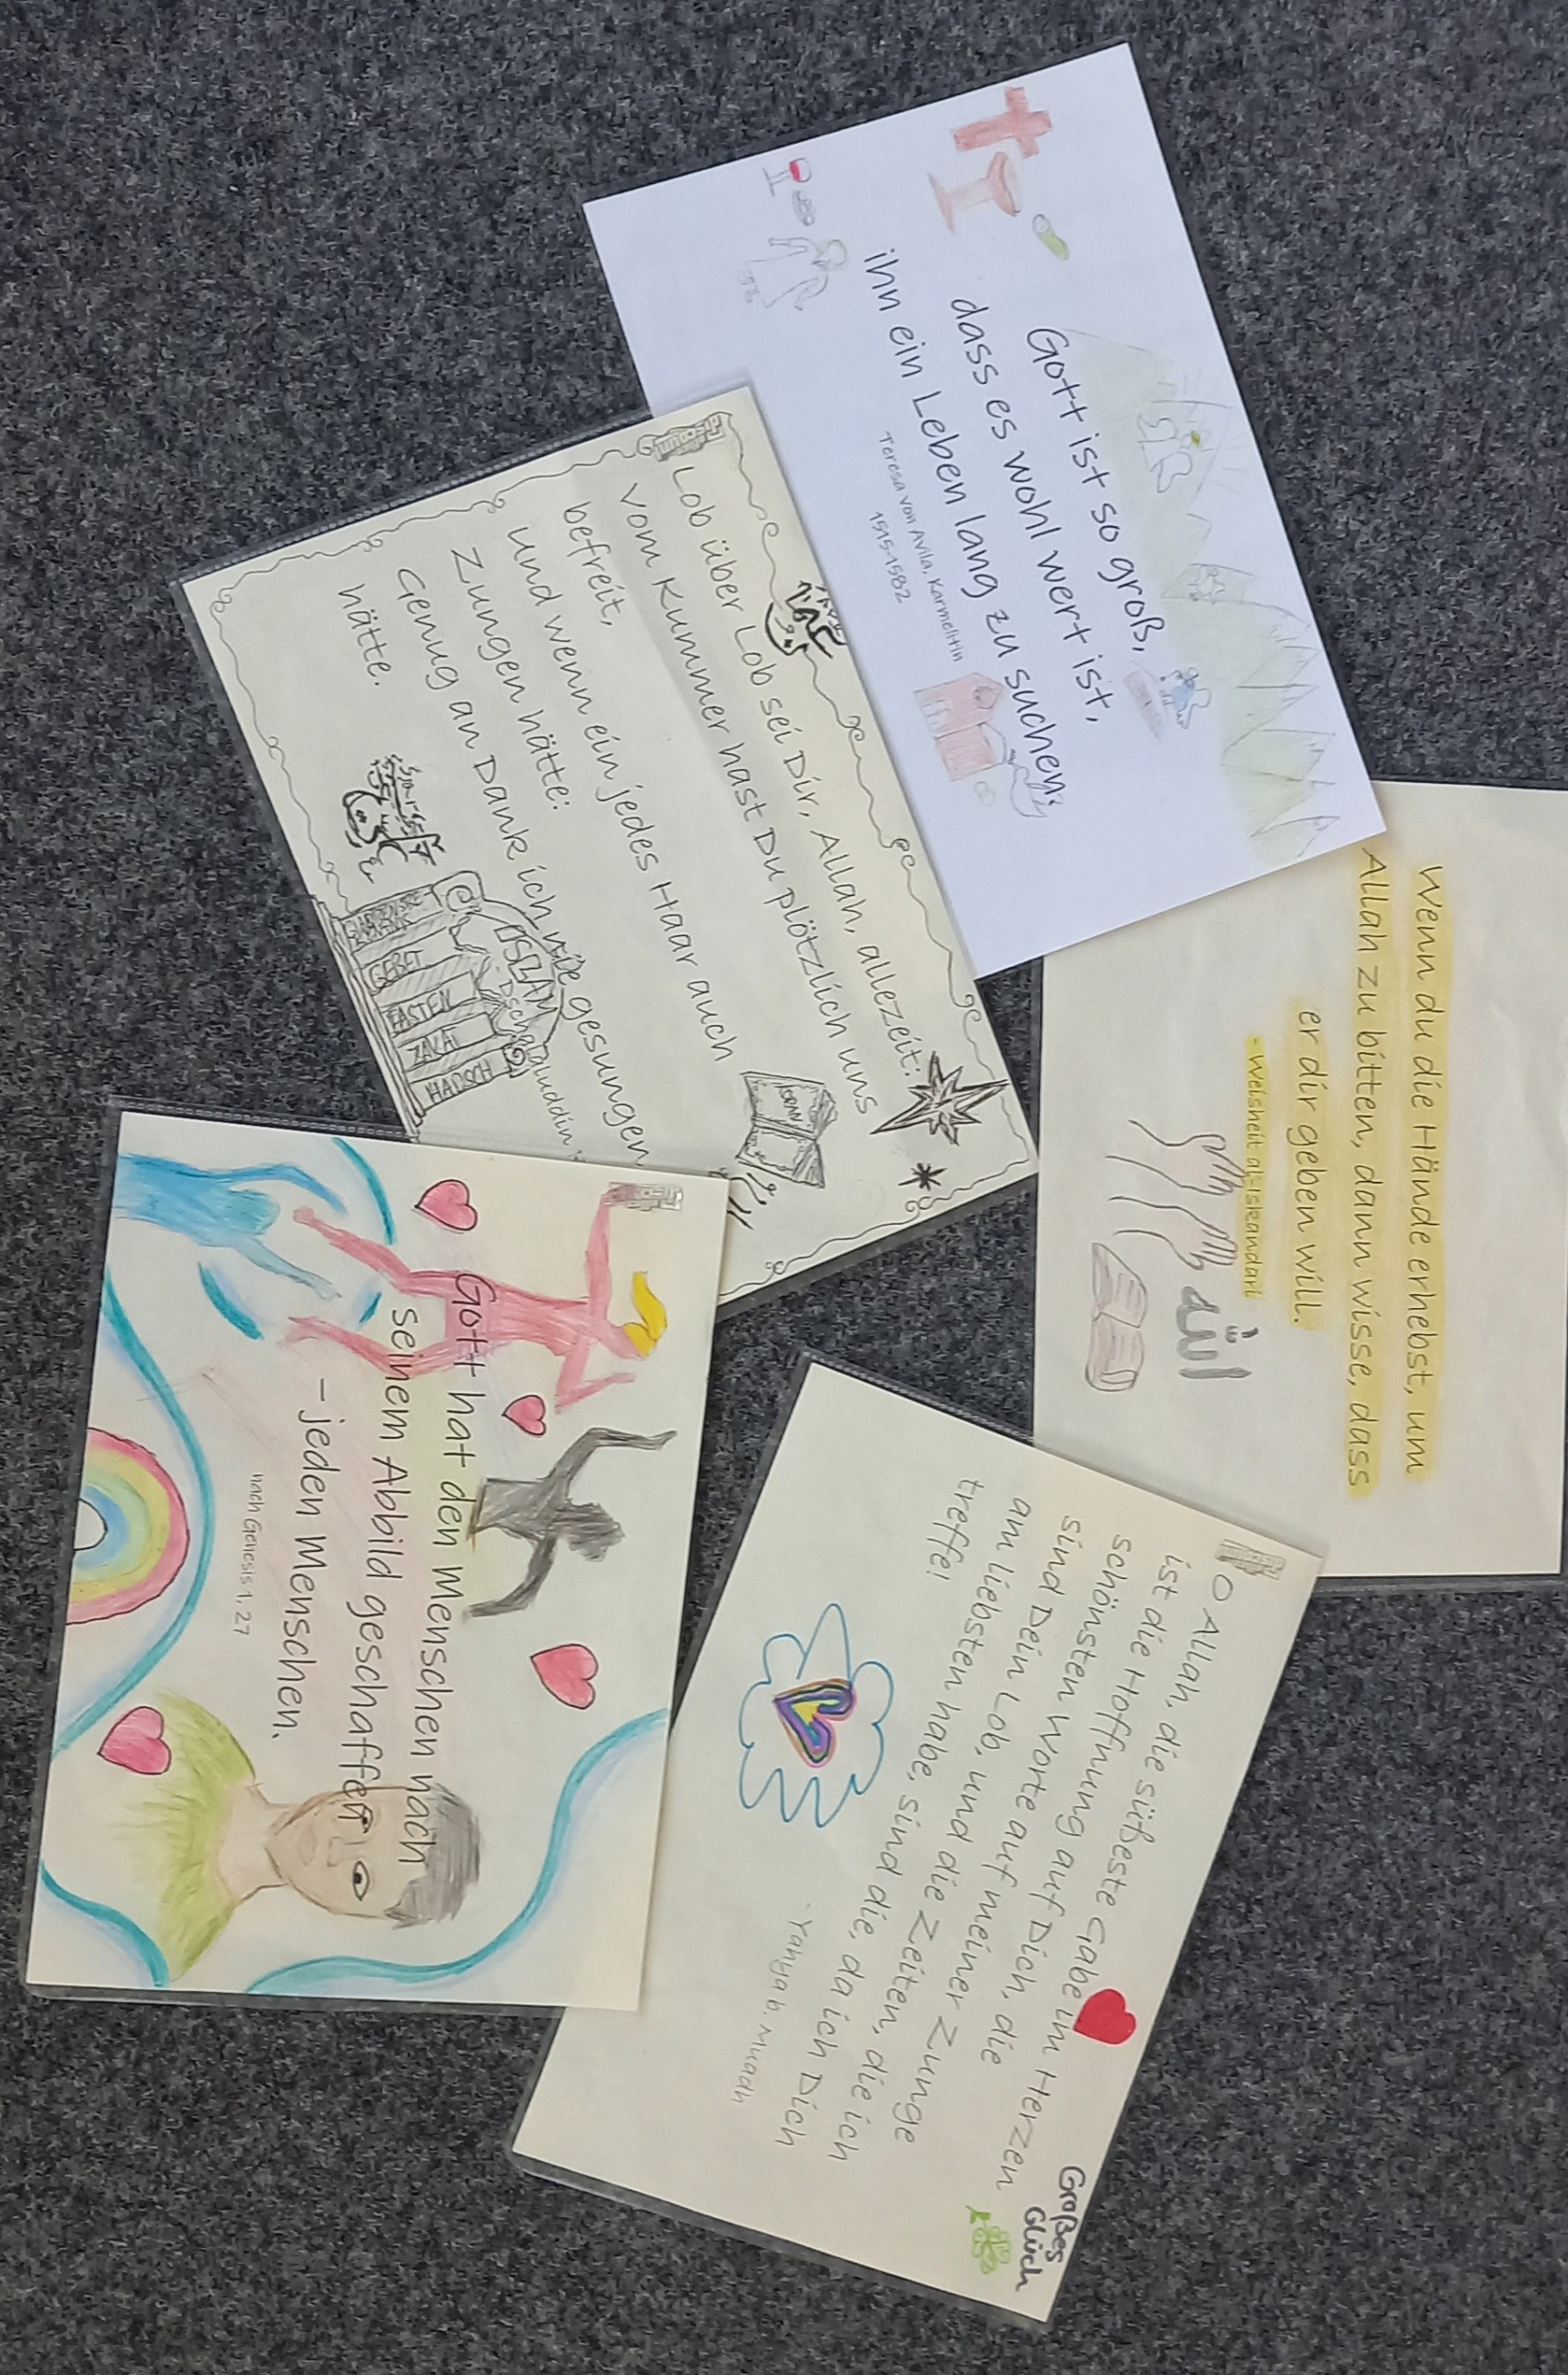 Gott ist so groß,
dass es wohl wert ist,
ihn ein Leben lang zu suchen.
Teresa von Avila, Karmelitin
1515-1582
Wenn du die Hände erhebst, um
Allah zu bitten, dann wisse, dass
er dir geben will.
- Weisheit al-Iskandari
الله
Lob über Lob sei Dir, Allah, allezeit:
vom Kummer hast Du plötzlich uns
befreit,
und wenn ein jedes Haar auch
Zungen hätte:
Genug an Dank ich nie gesungen
hätte.
KORAN
ISLAM
GEBET
FASTEN
ZAKAT
HADSCH
O Allah, die süßeste Gabe im Herzen
ist die Hoffnung auf Dich, die
schönsten Worte auf meiner Zunge
sind Dein Lob, und die Zeiten, die ich
am liebsten habe, sind die, da ich Dich
treffe!
- Yahya b. Muadh
Großes
Glück
Gott hat den Menschen nach
seinem Abbild geschaffen
- jeden Menschen.
nach Genesis 1, 27